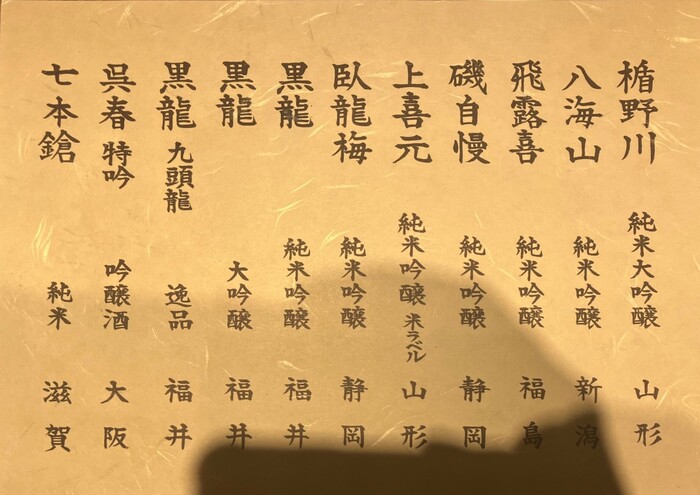 楯野川 純米大吟醸 山形
八海山 純米吟醸 新潟
飛露喜 純米吟醸 福島
磯自慢 純米吟醸 静岡
上喜元 純米吟醸 米ラベル 山形
臥龍梅 純米吟醸 静岡
黒龍 純米吟醸 福井
黒龍 大吟醸 福井
黒龍 九頭龍 逸品 福井
呉春 特吟 吟醸酒 大阪
七本鎗 純米 滋賀